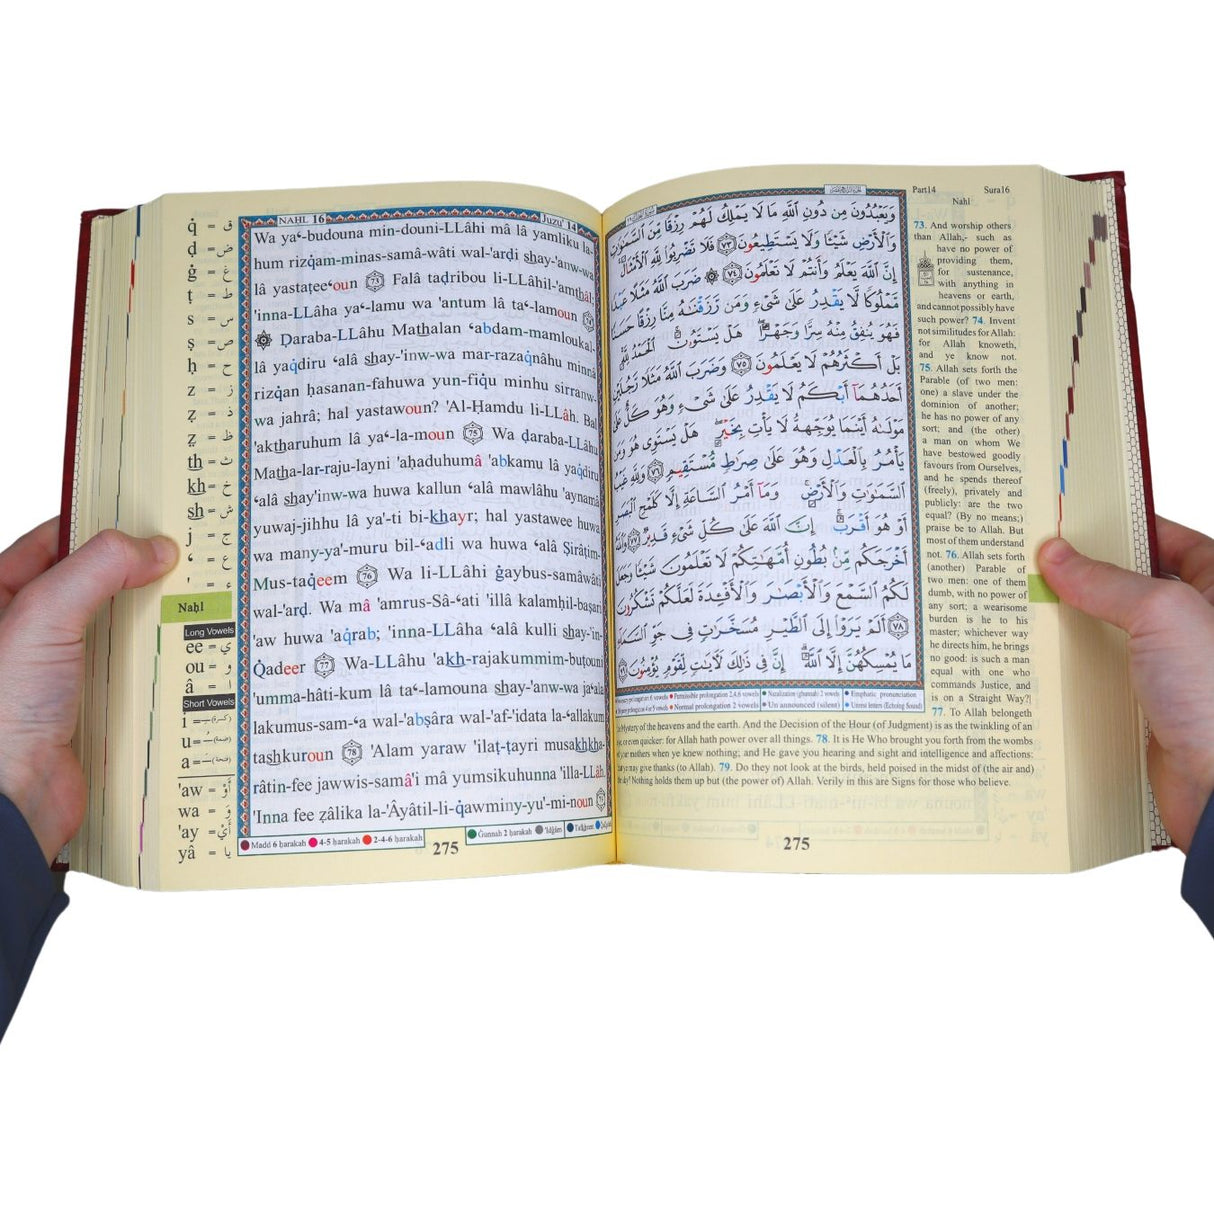 q̇ = ق
ḍ = ض
ġ = غ
ṭ = ط
s = س
ṣ = ص
ḥ = ح
z = ز
ẕ = ذ
ẓ = ظ
th = ث
kh = خ
sh = ش
j = ج
ʻ = ع
' = ء
Naḥl
Long Vowels
ee = ي
ou = و
â = ا
Short Vowels
i =
u =
a =
'aw = أَوْ
wa = وَ
'ay = أَيْ
yâ = يا
NAHL 16
Juzu' 14
Wa yaʻ-budouna min-douni-LLâhi mâ lâ yamliku la-
hum rizq̇am-minas-samâ-wâti wal-'arḍi shay-'anw-wa
lâ yastaṭeeʻoun 73 Falâ taḍribou li-LLâhil-'amthâl;
'inna-LLâha yaʻ-lamu wa 'antum lâ taʻ-lamoun 74
Ḍaraba-LLâhu Mathalan ʻabdam-mamloukal-
lâ yaq̇diru ʻalâ shay-'inw-wa mar-razaq̇nâhu minnâ
rizq̇an ḥasanan-fahuwa yun-fiq̇u minhu sirranw-
wa jahrâ; hal yastawoun? 'Al-Ḥamdu li-LLâh. Bal
'aktharuhum lâ yaʻ-la-moun 75 Wa ḍaraba-LLâhu
Matha-lar-raju-layni 'aḥaduhumâ 'abkamu lâ yaq̇diru
ʻalâ shay'inw-wa huwa kallun ʻalâ mawlâhu 'aynamâ
yuwaj-jihhu lâ ya'-ti bi-khayr; hal yastawee huwa
wa many-ya'-muru bil-ʻadli wa huwa ʻalâ Ṣirâṭim-
Mus-taq̇eem 76 Wa li-LLâhi ġaybus-samâwâti
wal-'arḍ. Wa mâ 'amrus-Sâ-ʻati 'illâ kalamḥil-baṣari
'aw huwa 'aq̇rab; 'inna-LLâha ʻalâ kulli shay-'in-
Q̇adeer 77 Wa-LLâhu 'akh-rajakummim-buṭouni
'umma-hâti-kum lâ taʻ-lamouna shay-'anw-wa jaʻala
lakumus-sam-ʻa wal-'abṣâra wal-'af-'idata la-ʻallakum
tashkuroun 78 'Alam yaraw 'ilaṭ-ṭayri musakhkha-
râtin-fee jawwis-samâ'i mâ yumsikuhunna 'illa-LLâh.
'Inna fee ẕâlika la-'Âyâtil-li-q̇awminy-yu'-mi-noun 79
Madd 6 ḥarakah 4-5 ḥarakah 2-4-6 ḥarakah
Ġunnah 2 ḥarakah 'Idġâm Tafkheem
275
وَيَعْبُدُونَ مِن دُونِ ٱللَّهِ مَا لَا يَمْلِكُ لَهُمْ رِزْقًا مِّنَ ٱلسَّمَٰوَٰتِ
وَٱلْأَرْضِ شَيْـًٔا وَلَا يَسْتَطِيعُونَ ٧٣ فَلَا تَضْرِبُوا۟ لِلَّهِ ٱلْأَمْثَالَ
إِنَّ ٱللَّهَ يَعْلَمُ وَأَنتُمْ لَا تَعْلَمُونَ ٧٤ ۞ ضَرَبَ ٱللَّهُ مَثَلًا عَبْدًا
مَّمْلُوكًا لَّا يَقْدِرُ عَلَىٰ شَىْءٍ وَمَن رَّزَقْنَٰهُ مِنَّا رِزْقًا حَسَنًا
فَهُوَ يُنفِقُ مِنْهُ سِرًّا وَجَهْرًا ۖ هَلْ يَسْتَوُۥنَ ۚ ٱلْحَمْدُ لِلَّهِ ۚ
بَلْ أَكْثَرُهُمْ لَا يَعْلَمُونَ ٧٥ وَضَرَبَ ٱللَّهُ مَثَلًا رَّجُلَيْنِ
أَحَدُهُمَآ أَبْكَمُ لَا يَقْدِرُ عَلَىٰ شَىْءٍ وَهُوَ كَلٌّ عَلَىٰ
مَوْلَىٰهُ أَيْنَمَا يُوَجِّههُّ لَا يَأْتِ بِخَيْرٍ ۖ هَلْ يَسْتَوِى هُوَ وَمَن
يَأْمُرُ بِٱلْعَدْلِ ۙ وَهُوَ عَلَىٰ صِرَٰطٍ مُّسْتَقِيمٍ ٧٦ وَلِلَّهِ غَيْبُ
ٱلسَّمَٰوَٰتِ وَٱلْأَرْضِ ۚ وَمَآ أَمْرُ ٱلسَّاعَةِ إِلَّا كَلَمْحِ ٱلْبَصَرِ
أَوْ هُوَ أَقْرَبُ ۚ إِنَّ ٱللَّهَ عَلَىٰ كُلِّ شَىْءٍ قَدِيرٌ ٧٧ وَٱللَّهُ
أَخْرَجَكُم مِّنۢ بُطُونِ أُمَّهَٰتِكُمْ لَا تَعْلَمُونَ شَيْـًٔا وَجَعَلَ
لَكُمُ ٱلسَّمْعَ وَٱلْأَبْصَٰرَ وَٱلْأَفْـِٔدَةَ ۙ لَعَلَّكُمْ تَشْكُرُونَ
٧٨ أَلَمْ يَرَوْا۟ إِلَى ٱلطَّيْرِ مُسَخَّرَٰتٍ فِى جَوِّ ٱلسَّمَآءِ
مَا يُمْسِكُهُنَّ إِلَّا ٱللَّهُ ۗ إِنَّ فِى ذَٰلِكَ لَءَايَٰتٍ لِّقَوْمٍ يُؤْمِنُونَ ٧٩
prolongation 6 vowels Permissible prolongation 2,4,6 vowels Nazalization (ghunnah) 2 vowels Emphatic pronunciation
prolongation 4 or 5 vowels Normal prolongation 2 vowels Un announced (silent) Unrest letters (Echoing Sound)
Part14 Sura16
Nahl
73. And worship others
than Allah,- such as
have no power of
providing them,
for sustenance,
with anything in
heavens or earth,
and cannot possibly have
such power? 74. Invent
not similitudes for Allah:
for Allah knoweth,
and ye know not.
75. Allah sets forth the
Parable (of two men:
one) a slave under the
dominion of another;
he has no power of any
sort; and (the other)
a man on whom We
have bestowed goodly
favours from Ourselves,
and he spends thereof
(freely), privately and
publicly: are the two
equal? (By no means;)
praise be to Allah. But
most of them understand
not. 76. Allah sets forth
(another) Parable of
two men: one of them
dumb, with no power of
any sort; a wearisome
burden is he to his
master; whichever way
he directs him, he brings
no good: is such a man
equal with one who
commands Justice, and
is on a Straight Way?
77. To Allah belongeth
the Mystery of the heavens and the earth. And the Decision of the Hour (of Judgment) is as the twinkling of an
eye, or even quicker: for Allah hath power over all things. 78. It is He Who brought you forth from the wombs
of your mothers when ye knew nothing; and He gave you hearing and sight and intelligence and affections:
that ye may give thanks (to Allah). 79. Do they not look at the birds, held poised in the midst of (the air and)
the sky? Nothing holds them up but (the power of) Allah. Verily in this are Signs for those who believe.
275